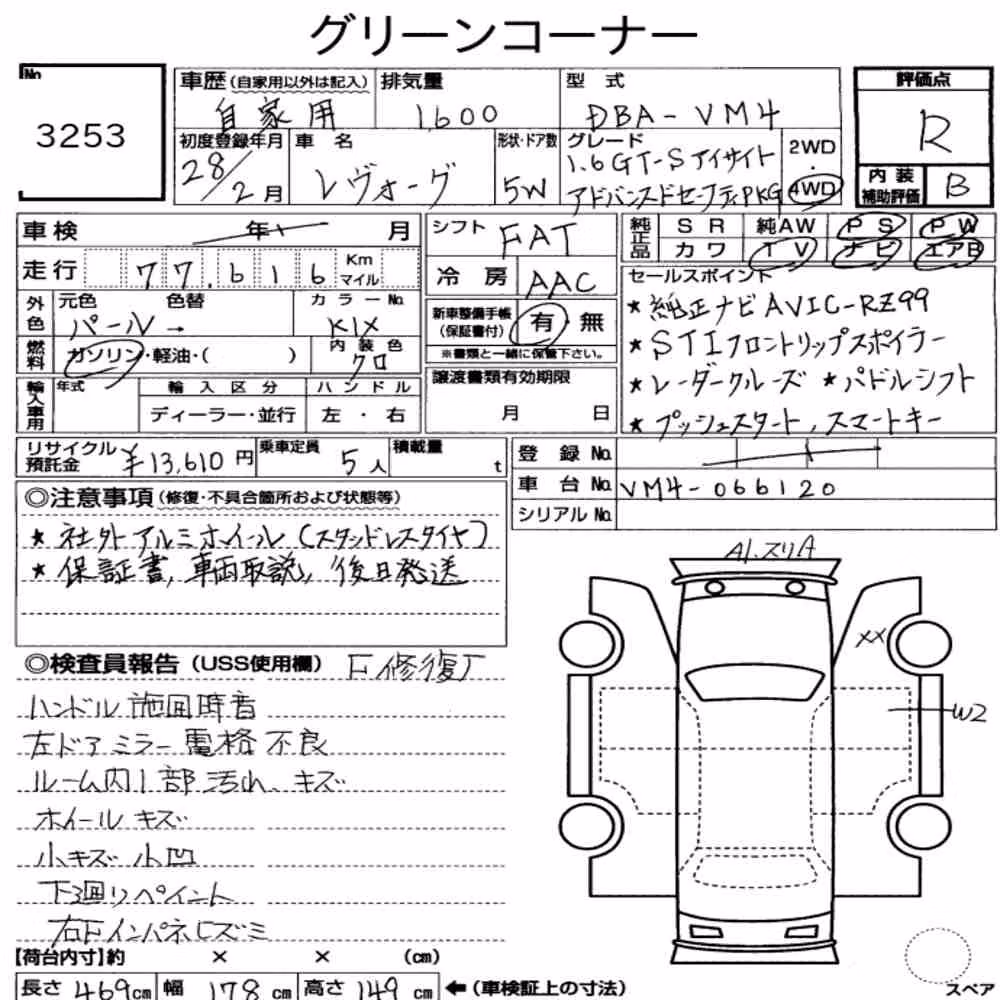 グリーンコーナー
No.
3253
車歴(自家用以外は記入)
自家用
排気量
1,600
型式
DBA-VM4
評価点
R
初度登録年月
28/2月
車名
レヴォーグ
形状・ドア数
5W
グレード
1.6GT-Sアイサイト
アドバンスドセーフティPKG
2WD
・
4WD
内装
補助評価
B
車検 年 月
シフト
FAT
純正品
SR 純AW PS PW
カワ TV ナビ エアB
走行 77,616 Km
マイル
冷房
AAC
セールスポイント
★純正ナビAVIC-RZ99
★STIフロントリップスポイラー
★レーダークルーズ ★パドルシフト
★プッシュスタート,スマートキー
外色
元色 色替
パール→
カラーNo.
K1X
新車整備手帳
(保証書付)
有・無
※書類と一緒に保管下さい。
燃料
ガソリン・軽油・( )
内装色
クロ
譲渡書類有効期限
月 日
輸入車用
年式
輸入区分
ハンドル
ディーラー・並行
左・右
リサイクル
預託金
¥13,610円
乗車定員
5人
積載量
t
登録No.
車台No.
VM4-066120
シリアルNo.
◎注意事項(修復・不具合箇所および状態等)
★社外アルミホイール(スタッドレスタイヤ)
★保証書,車両取説,後日発送
◎検査員報告(USS使用欄) F修復歴
ハンドル施回時音
左ドアミラー電格不良
ルーム内1部汚れ、キズ
ホイールキズ
小キズ 小凹
下廻りペイント
右Fインパネヒズミ
A1.スリA
XX
W2
【荷台内寸】約 × × (cm)
長さ469cm 幅178cm 高さ149cm ←(車検証上の寸法)
スペア